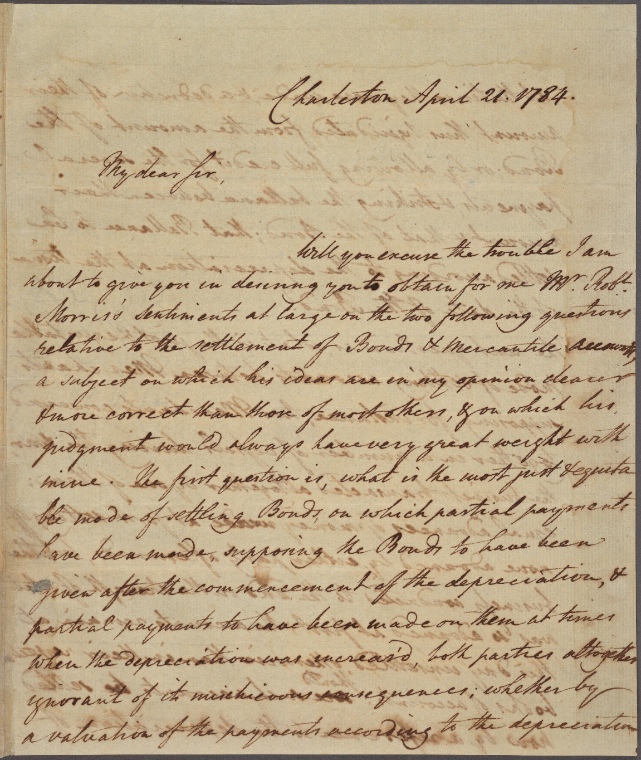 Charleston April 21. 1784.
My dear Sir,
Will you excuse the trouble I am
about to give you in desiring you to obtain for me Mr. Robt.
Morris's Sentiments at large on the two following questions
relative to the settlement of Bonds & Mercantile accounts,
a subject on which his ideas are in my opinion clearer
& more correct than those of most others, & on which his
judgment would always have very great weight with
mine. The first question is, what is the most just & equita
ble mode of settling Bonds, on which partial payments
have been made, supposing the Bonds to have been
given after the commencement of the depreciation, &
partial payments to have been made on them at times
when the depreciation was increas'd, both parties altogether
ignorant of its mischievous consequences; whether by
a valuation of the payments according to the depreciation